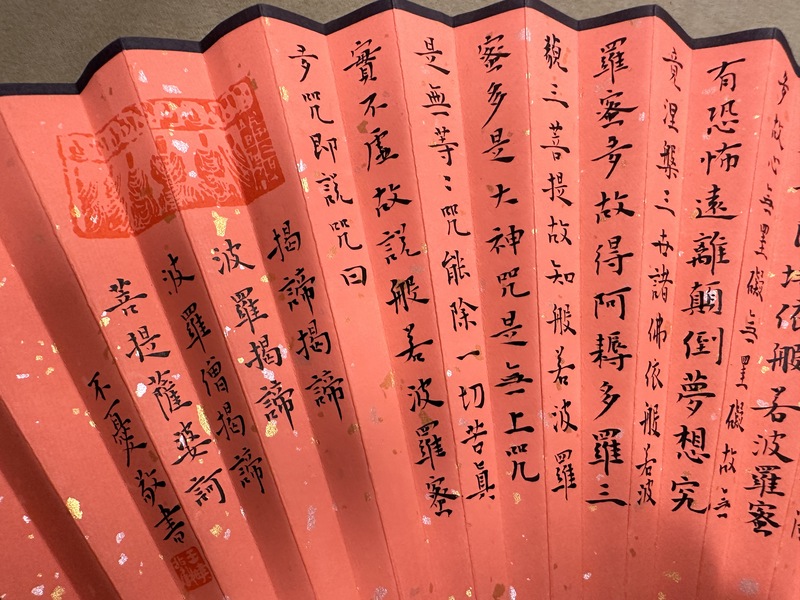 埵依般若波羅蜜
多故心無罣礙無罣礙故無
有恐怖遠離顛倒夢想究
竟涅槃三世諸佛依般若波
羅蜜多故得阿耨多羅三
藐三菩提故知般若波羅
蜜多是大神咒是無上咒
是無等〻咒能除一切苦真
實不虛故說般若波羅蜜
多咒即說咒曰
揭諦揭諦
波羅揭諦
波羅僧揭諦
菩提薩婆訶
不憂敬書